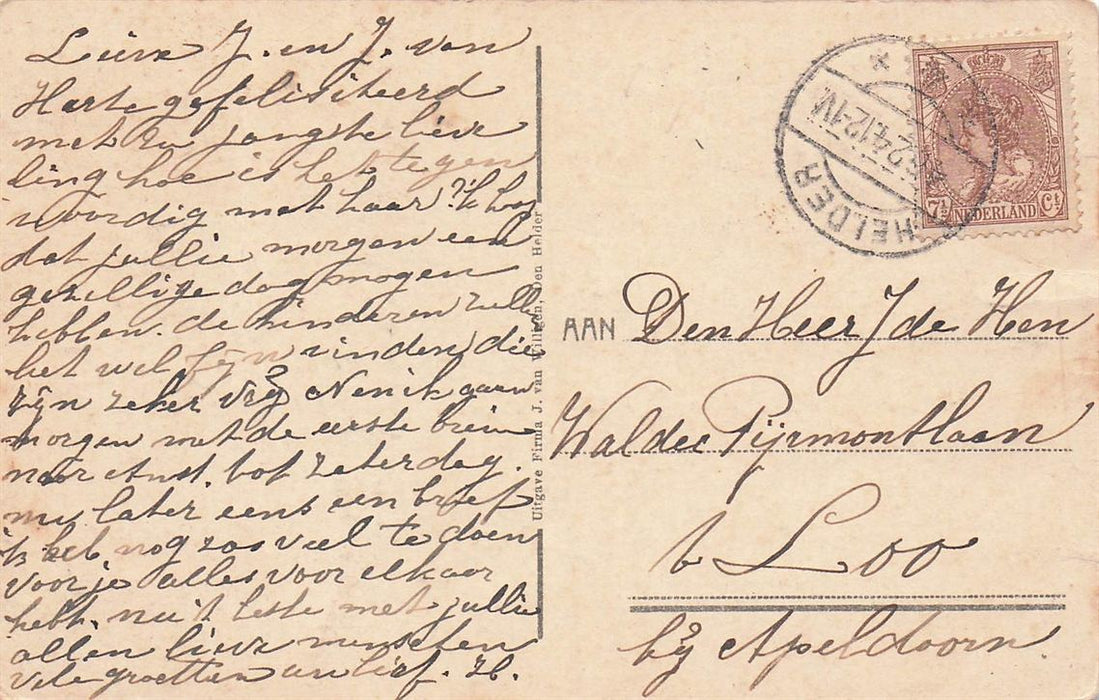 Lieve J. en J. van
Harte gefeliciteerd
met zu jongste lieve
ling hoe is het tegen
woordig met haar? 'k hoop
dat jullie morgen een
gezellige dag mogen
hebben. de kinderen zulle
het wel fijn vinden die
zijn zeker vrij N en ik gaan
morgen met de eerste trein
naar Amst. tot Zaterdag.
nu later eens een brief
'k heb nog zos veel te doen
voor je alles voor elkaar
hebt. nu 't beste met jullie
allen lieve menschen
vele groetten en lief. H.
Uitgave Firma J. van Willigen, Den Helder
HELDER
24.12-1V
7½ NEDERLAND Ct
AAN Den Heer J de Hen
Waldec Pijrmontlaan
t Loo
bij Apeldoorn.